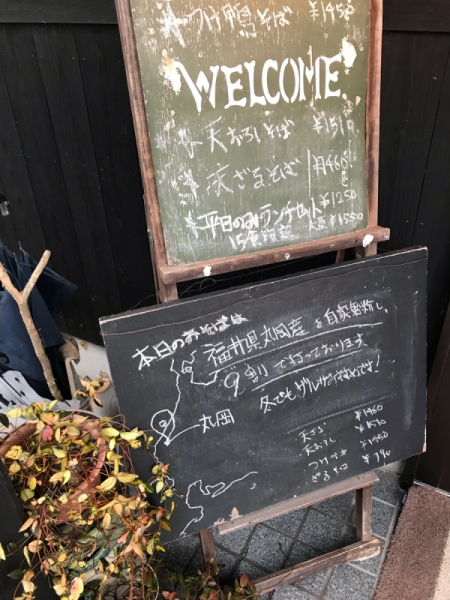 つけ鴨そば ¥1450
WELCOME
天おろしそば ¥1510
天ざるそば ¥1460
平日のみランチセット ¥1250
15食限定 ¥1550
本日のおそばは
福井県丸岡産を自家製粉し、
9割で打っております
冬でもザルがおすすめです!
丸岡
天ざる ¥1460
天おろし ¥1510
つけ鴨 ¥1450
ざるそば ¥790